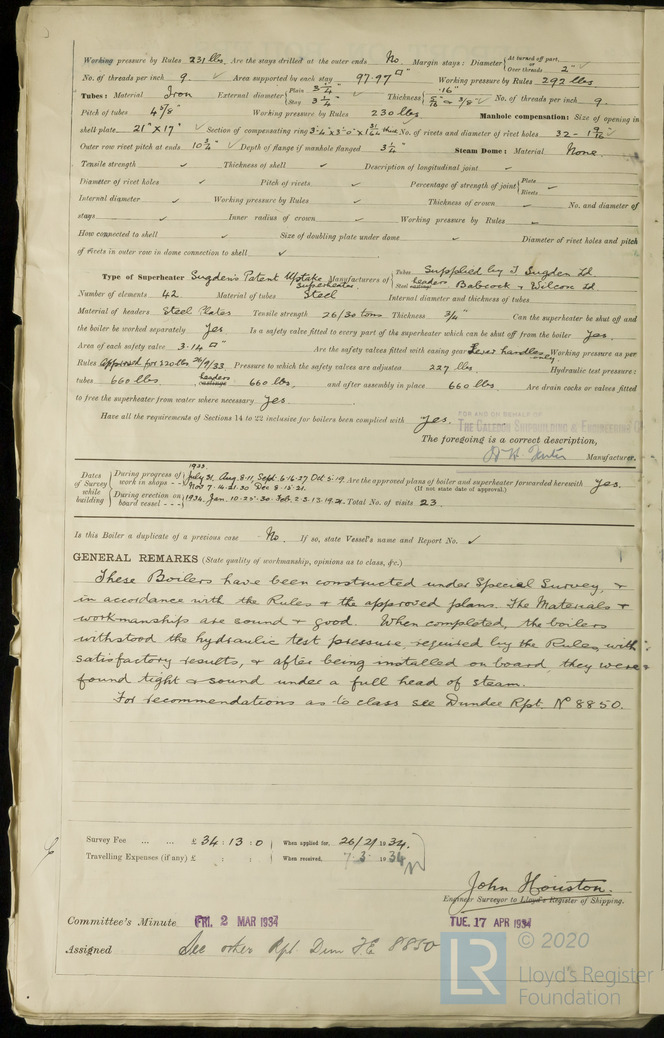 Working pressure by Rules 231 lbs. Are the stays drilled at the outer ends No. Margin stays: Diameter { At turned off part, or Over threads 2" ✓
No. of threads per inch 9 ✓ Area supported by each stay 97.97 □" Working pressure by Rules 292 lbs.
Tubes: Material Iron External diameter { Plain 3 1/4" Stay 3 1/4" ✓ Thickness { .16" 5/16" & 3/8" ✓ No. of threads per inch 9.
Pitch of tubes 4 5/8" Working pressure by Rules 230 lbs Manhole compensation: Size of opening in
shell plate 21" x 17" ✓ Section of compensating ring No. of rivets and diameter of rivet holes 32 -
Outer row rivet pitch at ends 10 3/4" ✓ Depth of flange if manhole flanged 3 1/4" Steam Dome: Material None.
Tensile strength ✓ Thickness of shell ✓ Description of longitudinal joint ✓
Diameter of rivet holes ✓ Pitch of rivets ✓ Percentage of strength of joint { Plate Rivets ✓
Internal diameter ✓ Working pressure by Rules ✓ Thickness of crown ✓ No. and diameter of
stays ✓ Inner radius of crown ✓ Working pressure by Rules ✓
How connected to shell ✓ Size of doubling plate under dome ✓ Diameter of rivet holes and pitch
of rivets in outer row in dome connection to shell ✓
Type of Superheater Sugden's Patent Uptake Superheater. Manufacturers of { Tubes Supplied by T Sugden Ld headers Babcock & Wilcox Ld
Number of elements 42 Material of tubes Steel Internal diameter and thickness of tubes
Material of headers Steel Plates Tensile strength 26/30 tons Thickness 3/4" Can the superheater be shut off and
the boiler be worked separately Yes Is a safety valve fitted to every part of the superheater which can be shut off from the boiler Yes.
Area of each safety valve 3.14 □" Are the safety valves fitted with easing gear Lever handles only. Working pressure as per
Rules Approved for 220 lbs 26/9/33 Pressure to which the safety valves are adjusted 227 lbs. Hydraulic test pressure:
tubes 660 lbs headers 660 lbs. and after assembly in place 660 lbs Are drain cocks or valves fitted
to free the superheater from water where necessary Yes.
Have all the requirements of Sections 14 to 22 inclusive for boilers been complied with Yes.
FOR AND ON BEHALF OF
THE CALEDON SHIPBUILDING & ENGINEERING Co
The foregoing is a correct description,
Manufacturer.
Dates of Survey while building { During progress of work in shops - - { 1933. July 31, Aug. 8.11, Sept. 6.16.27 Oct 5.19. Nov 7.14.21.30 Dec 8.15.21. Are the approved plans of boiler and superheater forwarded herewith Yes.
(If not state date of approval.)
During erection on board vessel - - - { 1934. Jan. 10.25.30 Feb. 2.3.13.19.21. Total No. of visits 23.
Is this Boiler a duplicate of a previous case No. If so, state Vessel's name and Report No. ✓
GENERAL REMARKS (State quality of workmanship, opinions as to class, &c.)
These Boilers have been constructed under Special Survey, &
in accordance with the Rules & the approved plans. The Materials &
workmanship are sound & good. When completed, the boilers
withstood the hydraulic test pressure, required by the Rules, with
satisfactory results, & after being installed on board, they were
found tight & sound under a full head of steam.
For recommendations as to class see Dundee Rpt. No 8850.
Survey Fee ... ... £ 34 : 13 : 0 When applied for, 26/2/1934.
Travelling Expenses (if any) £ : : When received, 7.3.1934
John Houston.
Engineer Surveyor to Lloyd's Register of Shipping.
Committee's Minute FRI. 2 MAR 1934 TUE. 17 APR 1934
Assigned See other Rpt. Dun FE 8850
LR © 2020
Lloyd's Register
Foundation